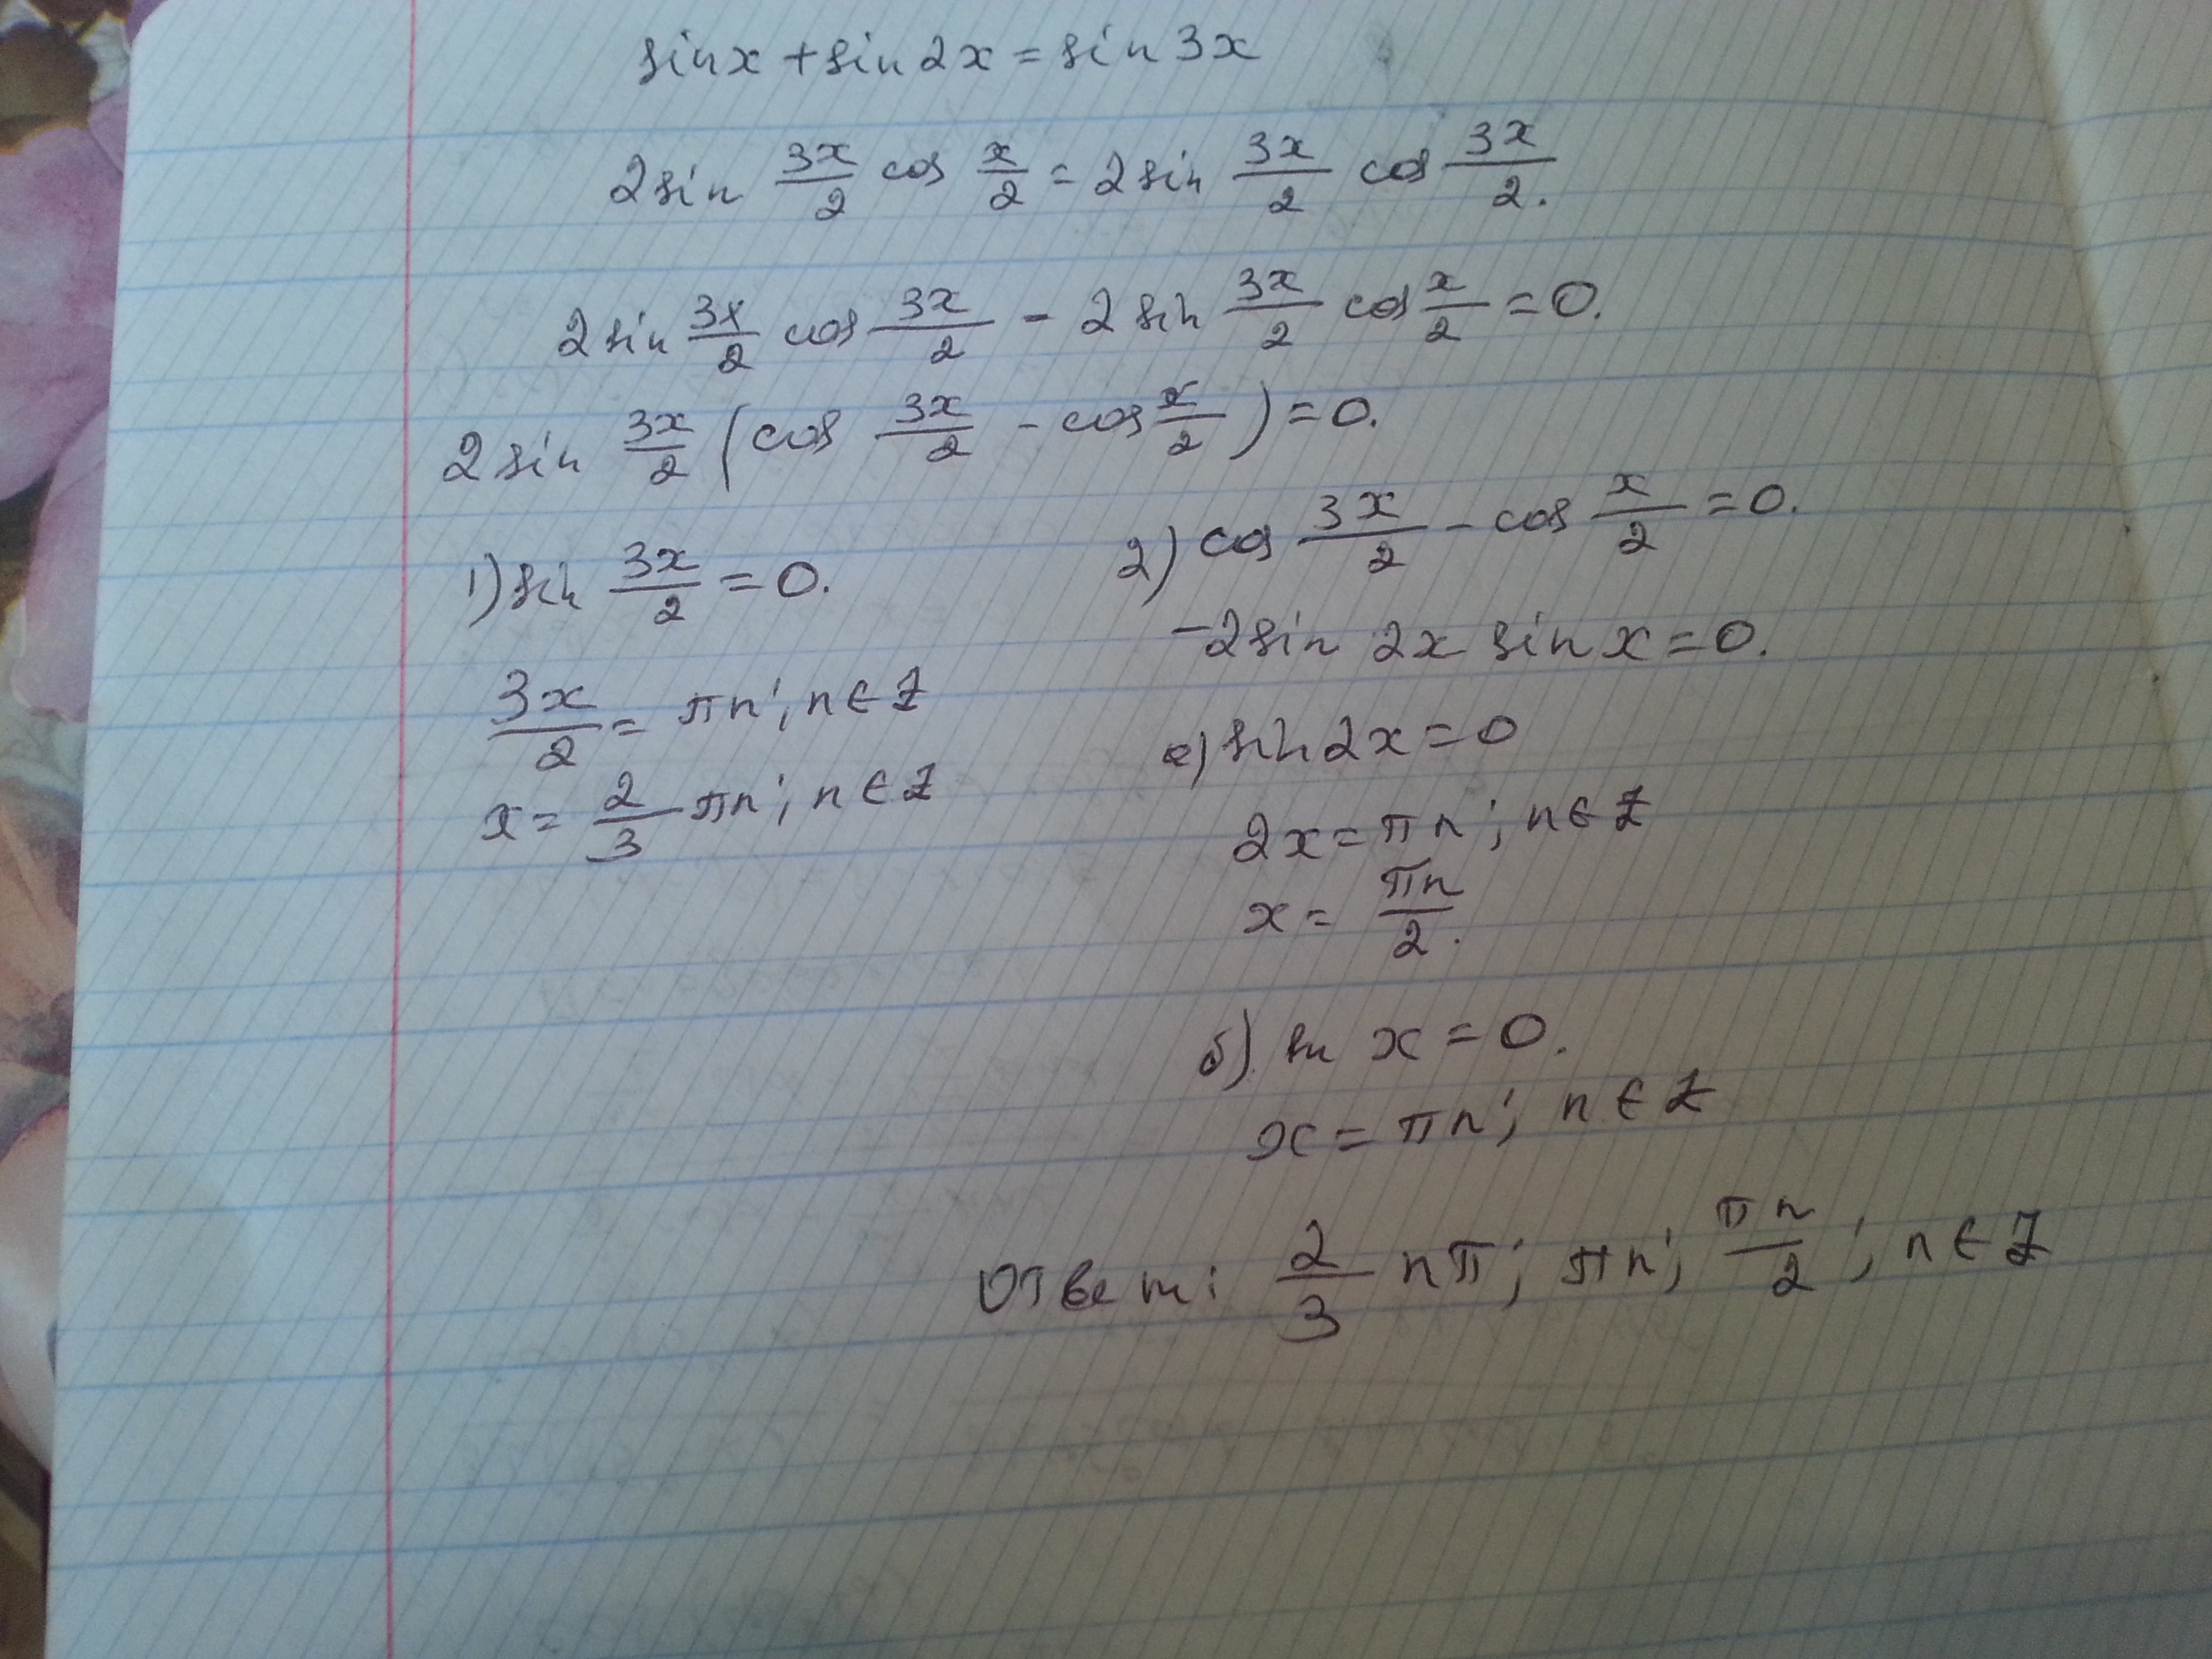 sinx + sin 2x = sin 3x
2 sin 3x/2 cos x/2 = 2 sin 3x/2 cos 3x/2.
2 sin 3x/2 cos 3x/2 - 2 sin 3x/2 cos x/2 = 0.
2 sin 3x/2 (cos 3x/2 - cos x/2) = 0.
1) sin 3x/2 = 0.
3x/2 = πn; n ∈ Z
x = 2/3 πn; n ∈ Z
2) cos 3x/2 - cos x/2 = 0.
-2 sin 2x sin x = 0.
а) sin 2x = 0
2x = πn; n ∈ Z
x = πn/2.
б) x = 0.
x = πn; n ∈ Z
Ответ: 2/3 nπ; πn; πn/2; n ∈ Z